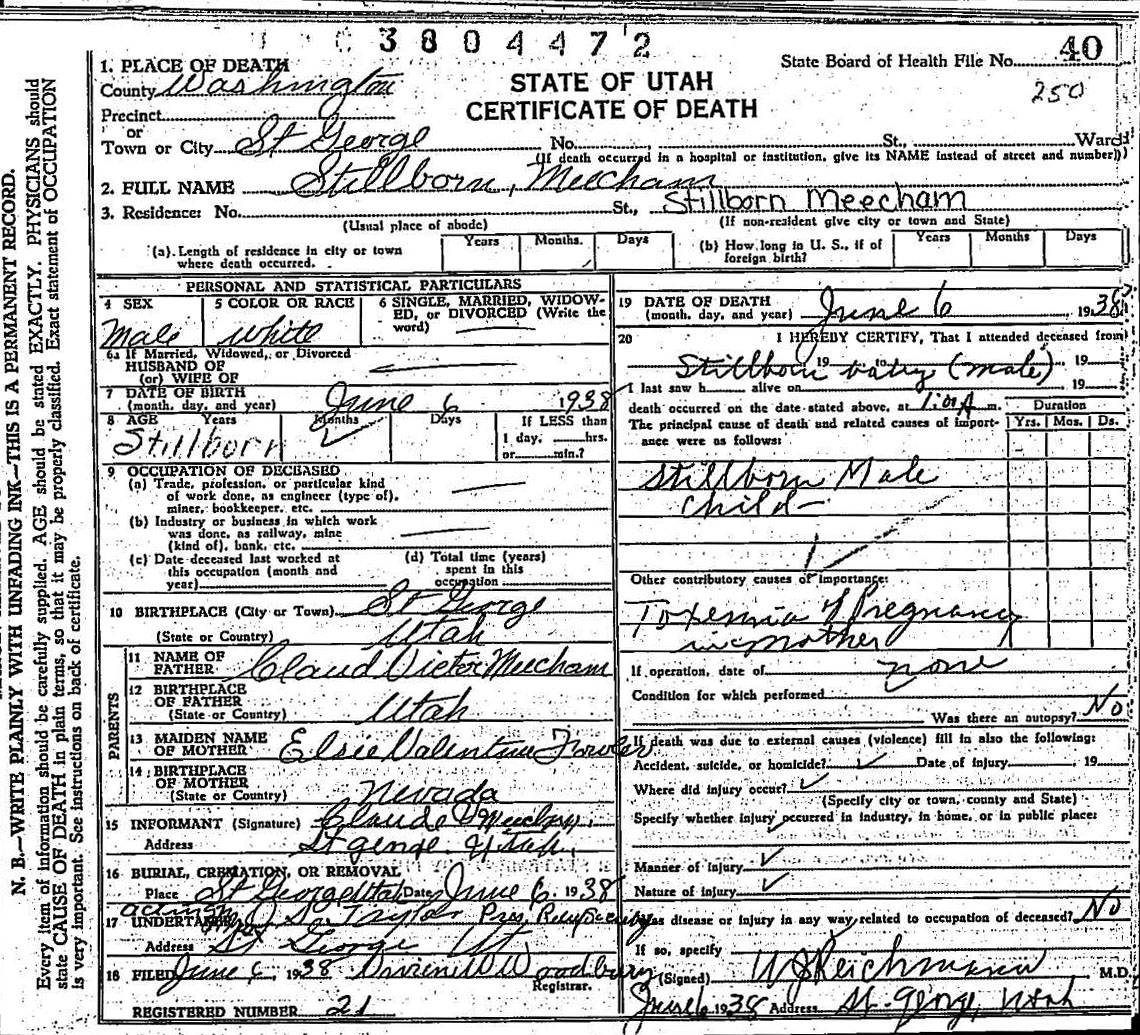 3804472
State Board of Health File No. 40
250
STATE OF UTAH
CERTIFICATE OF DEATH
1. PLACE OF DEATH
County Washington
Precinct
or
Town or City St George No. St., Ward
(If death occurred in a hospital or institution, give its NAME instead of street and number)
2. FULL NAME Stillborn, Meecham
3. Residence: No. St., Stillborn Meecham
(Usual place of abode) (If non-resident give city or town and State)
(a). Length of residence in city or town where death occurred. Years Months. Days
(b) How long in U. S., if of foreign birth? Years Months Days
PERSONAL AND STATISTICAL PARTICULARS
4 SEX Male
5 COLOR OR RACE white
6 SINGLE, MARRIED, WIDOWED, or DIVORCED (Write the word)
6a If Married, Widowed, or Divorced
HUSBAND OF
(or) WIFE OF
7 DATE OF BIRTH
(month, day, and year) June 6 1938
8 AGE Years Months Days If LESS than
Stillborn 1 day, hrs.
or min.?
9 OCCUPATION OF DECEASED
(a) Trade, profession, or particular kind
of work done, as engineer (type of),
miner, bookkeeper, etc.
(b) Industry or business in which work
was done, as railway, mine
(kind of), bank, etc.
(c) Date deceased last worked at
this occupation (month and
year)
(d) Total time (years)
spent in this
occupation
10 BIRTHPLACE (City or Town) St George
(State or Country) Utah
PARENTS
11 NAME OF
FATHER Claud Victor Meecham
12 BIRTHPLACE
OF FATHER
(State or Country) Utah
13 MAIDEN NAME
OF MOTHER Elsie Valentine Fowler
14 BIRTHPLACE
OF MOTHER
(State or Country) Nevada
15 INFORMANT (Signature) Claude V Meecham
Address St George Utah
16 BURIAL, CREMATION, OR REMOVAL
Place St George Utah Date June 6, 1938
acting
17 UNDERTAKER Taylor Pres. Relief Society
Address St George Ut.
18 FILED June 6 1938 Woodbury
Registrar.
REGISTERED NUMBER 21
19 DATE OF DEATH
(month, day, and year) June 6 1938
20 I HEREBY CERTIFY, That I attended deceased from
Stillborn 19 to baby (male) 19
I last saw h alive on 19
death occurred on the date stated above, at 1:01 A m.
Duration
The principal cause of death and related causes of importance were as follows: Yrs. Mos. Ds.
Stillborn Male
Child
Other contributory causes of importance:
Toxemia of Pregnancy
in mother
If operation, date of none
Condition for which performed
Was there an autopsy? No
If death was due to external causes (violence) fill in also the following:
Accident, suicide, or homicide? Date of injury 19
Where did injury occur?
(Specify city or town, county and State)
Specify whether injury occurred in industry, in home, or in public place:
Manner of injury
Nature of injury
Was disease or injury in any way related to occupation of deceased? No
If so, specify
(Signed) W J Reichmann M.D.
June 6 1938 Address St. George, Utah
N. B.—WRITE PLAINLY WITH UNFADING INK—THIS IS A PERMANENT RECORD.
Every item of information should be carefully supplied. AGE should be stated EXACTLY. PHYSICIANS should
state CAUSE OF DEATH in plain terms, so that it may be properly classified. Exact statement of OCCUPATION
is very important. See instructions on back of certificate.